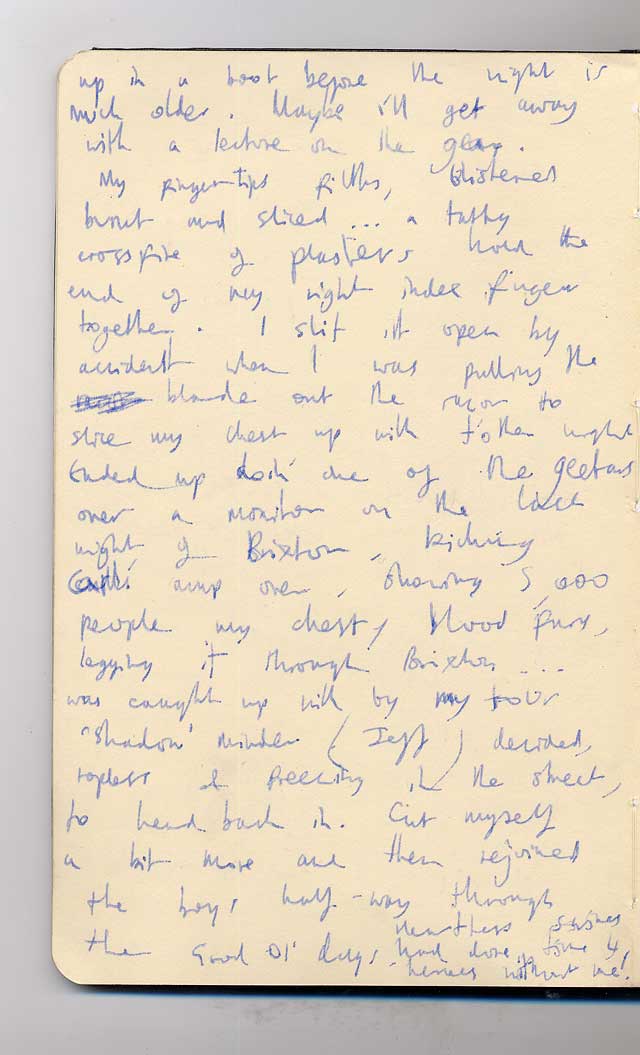 up in a boot before the night is
much older. Maybe i'll get away
with a lecture on the
My fingertips filths, blistered
burnt and sliced ... a tatty
crossfire of plasters hold the
end of my right index finger
together. I slit it open by
accident when I was pulling the
blande out the razor to
slice my chest up with t'other night
Ended up doin' one of the geetars
over a monitor on the last
night of Brixton, kicking
Carl's amp over, showing 5,000
people my chest, blood furs,
legging it through Brixton ...
was caught up with by my tour
'shadow' minder (Jeff) decided,
topless & freezing in the street,
to head back in. Cut myself
a bit more and then rejoined
the boys half-way through
the Good Ol' days
Heartless swines
had done time 4
heroes without me!